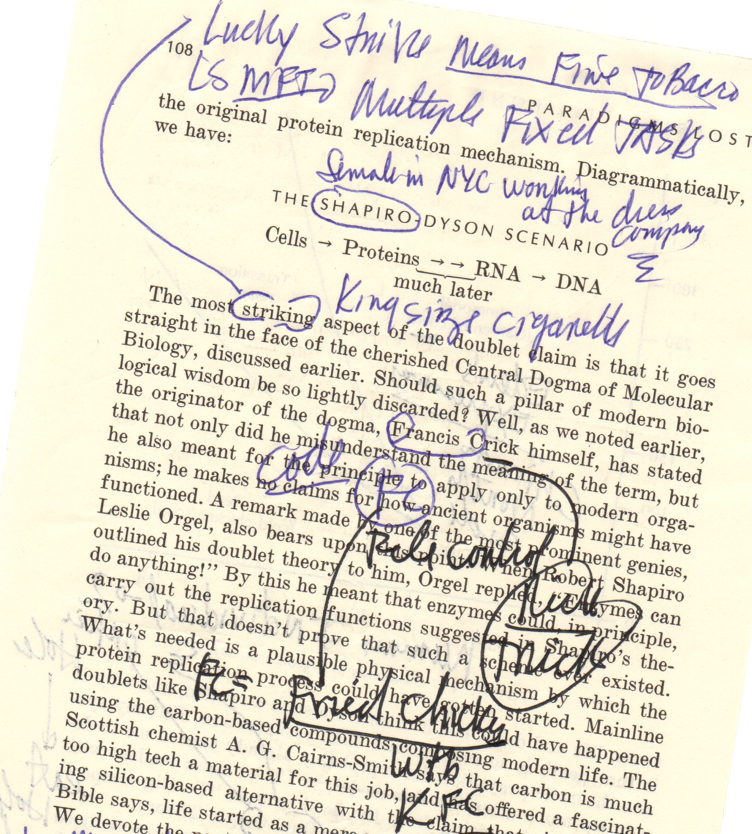 Lucky Strike Means Fine Tobacco
108
LSMFT Multiple Fixed TASKS
PARADIGMS LOST
the original protein replication mechanism. Diagrammatically,
we have:
female in NYC working
at the dress
company
THE SHAPIRO-DYSON SCENARIO
Cells → Proteins → → RNA → DNA
much later
King size cigarette
The most striking aspect of the doublet claim is that it goes
straight in the face of the cherished Central Dogma of Molecular
Biology, discussed earlier. Should such a pillar of modern bio-
logical wisdom be so lightly discarded? Well, as we noted earlier,
the originator of the dogma, Francis Crick himself, has stated
that not only did he misunderstand the meaning of the term, but
he also meant for the principle to apply only to modern orga-
code
FC
nisms; he makes no claims for how ancient organisms might have
functioned. A remark made by one of the most prominent genies,
Leslie Orgel, also bears upon this point. When Robert Shapiro
control
outlined his doublet theory to him, Orgel replied, "Enzymes can
do anything!" By this he meant that enzymes could, in principle,
carry out the replication functions suggested in Shapiro's the-
ory. But that doesn't prove that such a scheme ever existed.
Thick
What's needed is a plausible physical mechanism by which the
protein replication process could have gotten started. Mainline
FC = Fried chicken
doublets like Shapiro and Dyson think this could have happened
using the carbon-based compounds composing modern life. The
Scottish chemist A. G. Cairns-Smith says that carbon is much
with
too high tech a material for this job, and has offered a fascinat-
KFC
ing silicon-based alternative with the claim that
Bible says, life started as a mere
We devote the